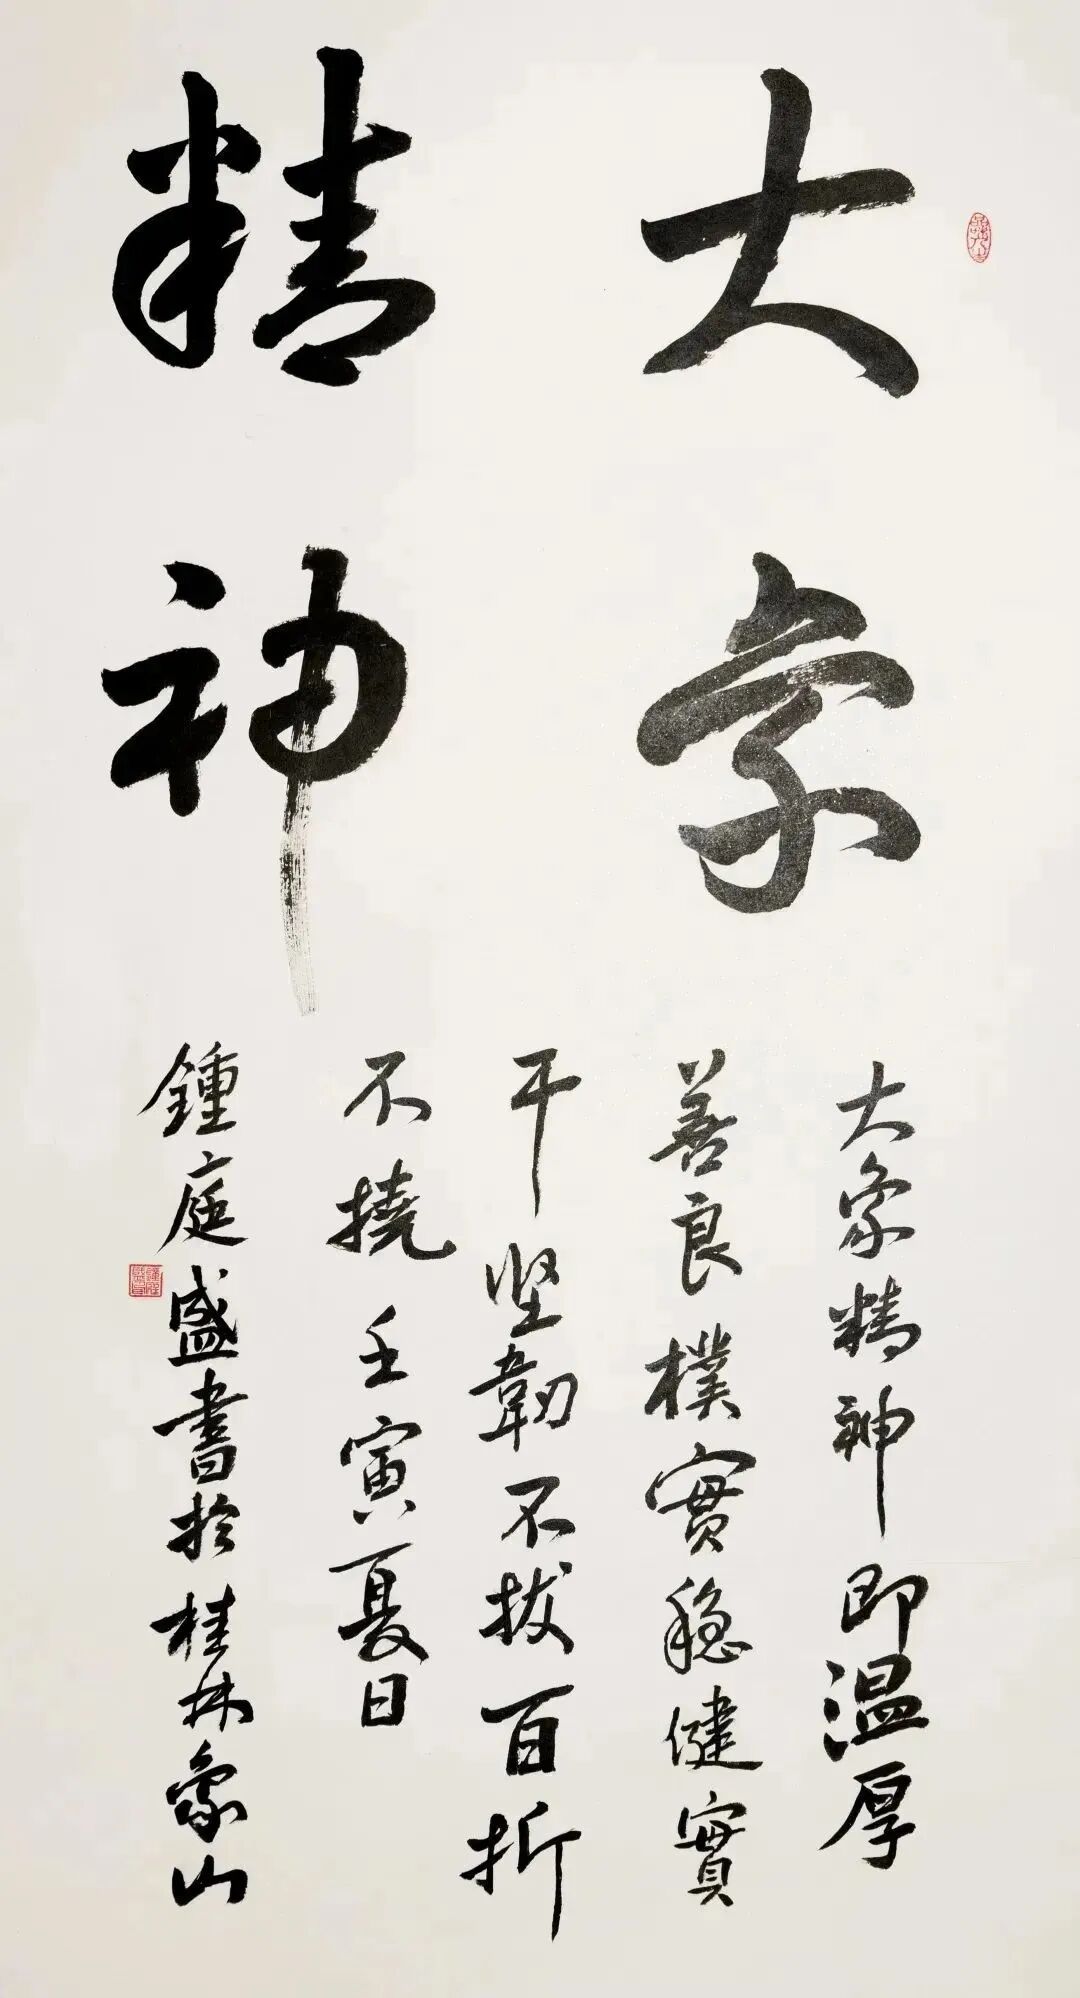 大象
精神
大象精神即温厚
善良樸實穩健實
干坚韌不拔百折
不撓壬寅夏日
鍾庭盛書於桂林象山